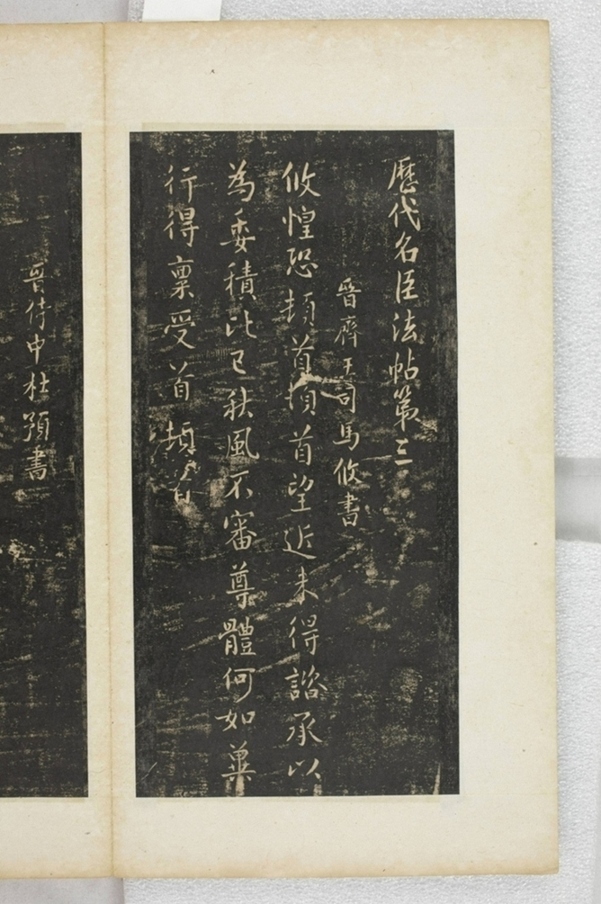 歷代名臣法帖第三
晉齊王司馬攸書
攸惶恐頓首頓首望近未得諮承以
為委積比已秋風不審尊體何如冀
行得稟受首頓首
晉侍中杜預書